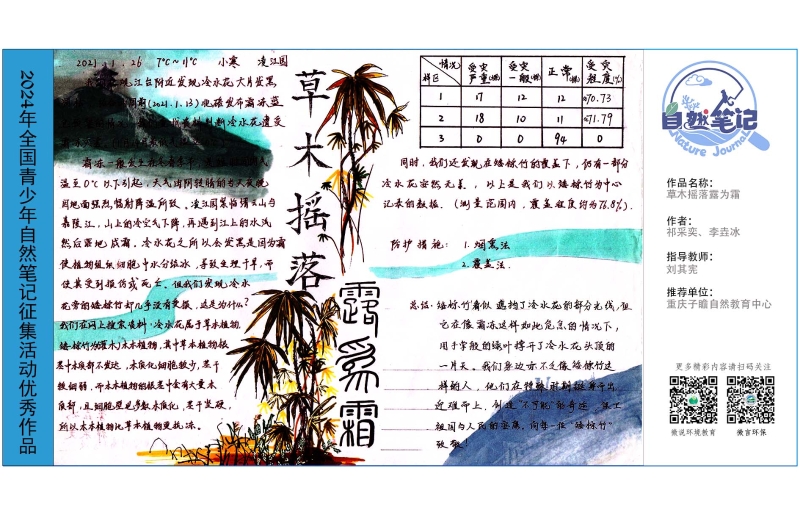 2024年全国青少年自然笔记征集活动优秀作品
2021.1.26 7℃~11℃ 小寒 凌江园
江台附近发现冷水花大片发黑
(2021.1.13)
温至0℃以下引起,天气由阴转晴的当天夜晚
因地面强烈辐射降温所致。凌江园紧临缙云山与
嘉陵江,山上的冷空气下降,再遇到江上的水汽
然后落地成霜。冷水花之所以会发黑是因为霜
使植物组织细胞中水分结冰,导致生理干旱,而
使其受到损伤或死亡。但我们发现冷水
花旁的矮棕竹却几乎没有受损,这是为什么?
我们在网上搜索资料,冷水花属于草本植物,
矮棕竹为灌木)木本植物,其中草本植物根
茎中木质部不发达,木质化细胞较少,茎干
较细弱,而木本植物的根茎中含有大量木
质部,且细胞壁见多数木质化,茎干坚硬,
所以木本植物比草本植物更抗冻。
草木摇落
露为霜
情况 样区 受灾严重(棵) 受灾一般(棵) 正常(棵) 受灾程度(%)
1 17 12 12 ≈70.73
2 18 10 11 ≈71.79
3 0 0 94 0
同时,我们还发现在矮棕竹的覆盖下,仍有一部分
冷水花安然无恙,以上是我们以矮棕竹为中心
记录的数据。(测量范围内,覆盖程度约为76.8%)
防护措施: 1.烟熏法
2.覆盖法.
总结:矮棕竹看似遮挡了冷水花的部分光线,但
它在像霜冻这样如此危急的情况下,
用宁般的绿叶撑开了冷水花头顶的
一片天。我们身边亦不乏像矮棕竹这
样的人,他们在特殊时期挺身而出
迎难而上,创造“不可能”的奇迹
祖国与人民的安康,向每一位“矮棕竹”
致敬!
自然笔记
Nature Journal
作品名称:
草木摇落露为霜
作者:
祁采奕、李垚冰
指导教师:
刘其宪
推荐单位:
重庆子瞻自然教育中心
更多精彩内容请扫码关注
微说环境教育 微言环保